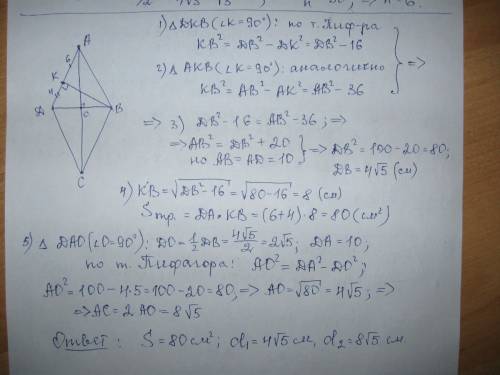 1) Δ DKB (∠K=90°): по т. Пиф-ра
KB² = DB² - DK² = DB² - 16
2) Δ AKB (∠K=90°): аналогично
KB² = AB² - AK² = AB² - 36
=>
A
6
K
4
D
O
B
C
=> 3) DB² - 16 = AB² - 36; =>
=> AB² = DB² + 20
но AB = AD = 10
=> DB² = 100 - 20 = 80;
DB = 4√5 (см)
4) KB = √DB² - 16 = √80 - 16 = 8 (см)
Sпр. = DA · KB = (6+4) · 8 = 80 (см²)
5) Δ DAO (∠O=90°): DO = 1/2 DB = 4√5/2 = 2√5; DA = 10;
по т. Пифагора: AO² = DA² - DO²;
AO² = 100 - 4·5 = 100 - 20 = 80; => AO = √80 = 4√5; =>
=> AC = 2AO = 8√5
Ответ: S = 80 см²; d₁ = 4√5 см, d₂ = 8√5 см